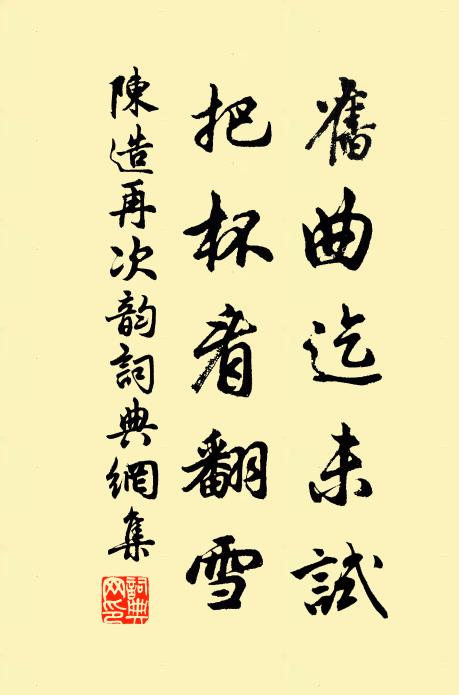 舊曲迄未試
把杯看翻雪
陳造再次韵詞典網集
詞典网印